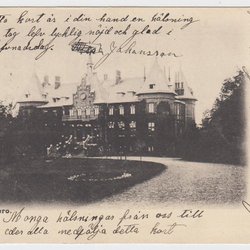 kort är i din hand en hälsning
tag lef lycklig nöjd och glad i
Johansson
ro.
Många hälsningar från oss till
eder alla nedfälja detta kort